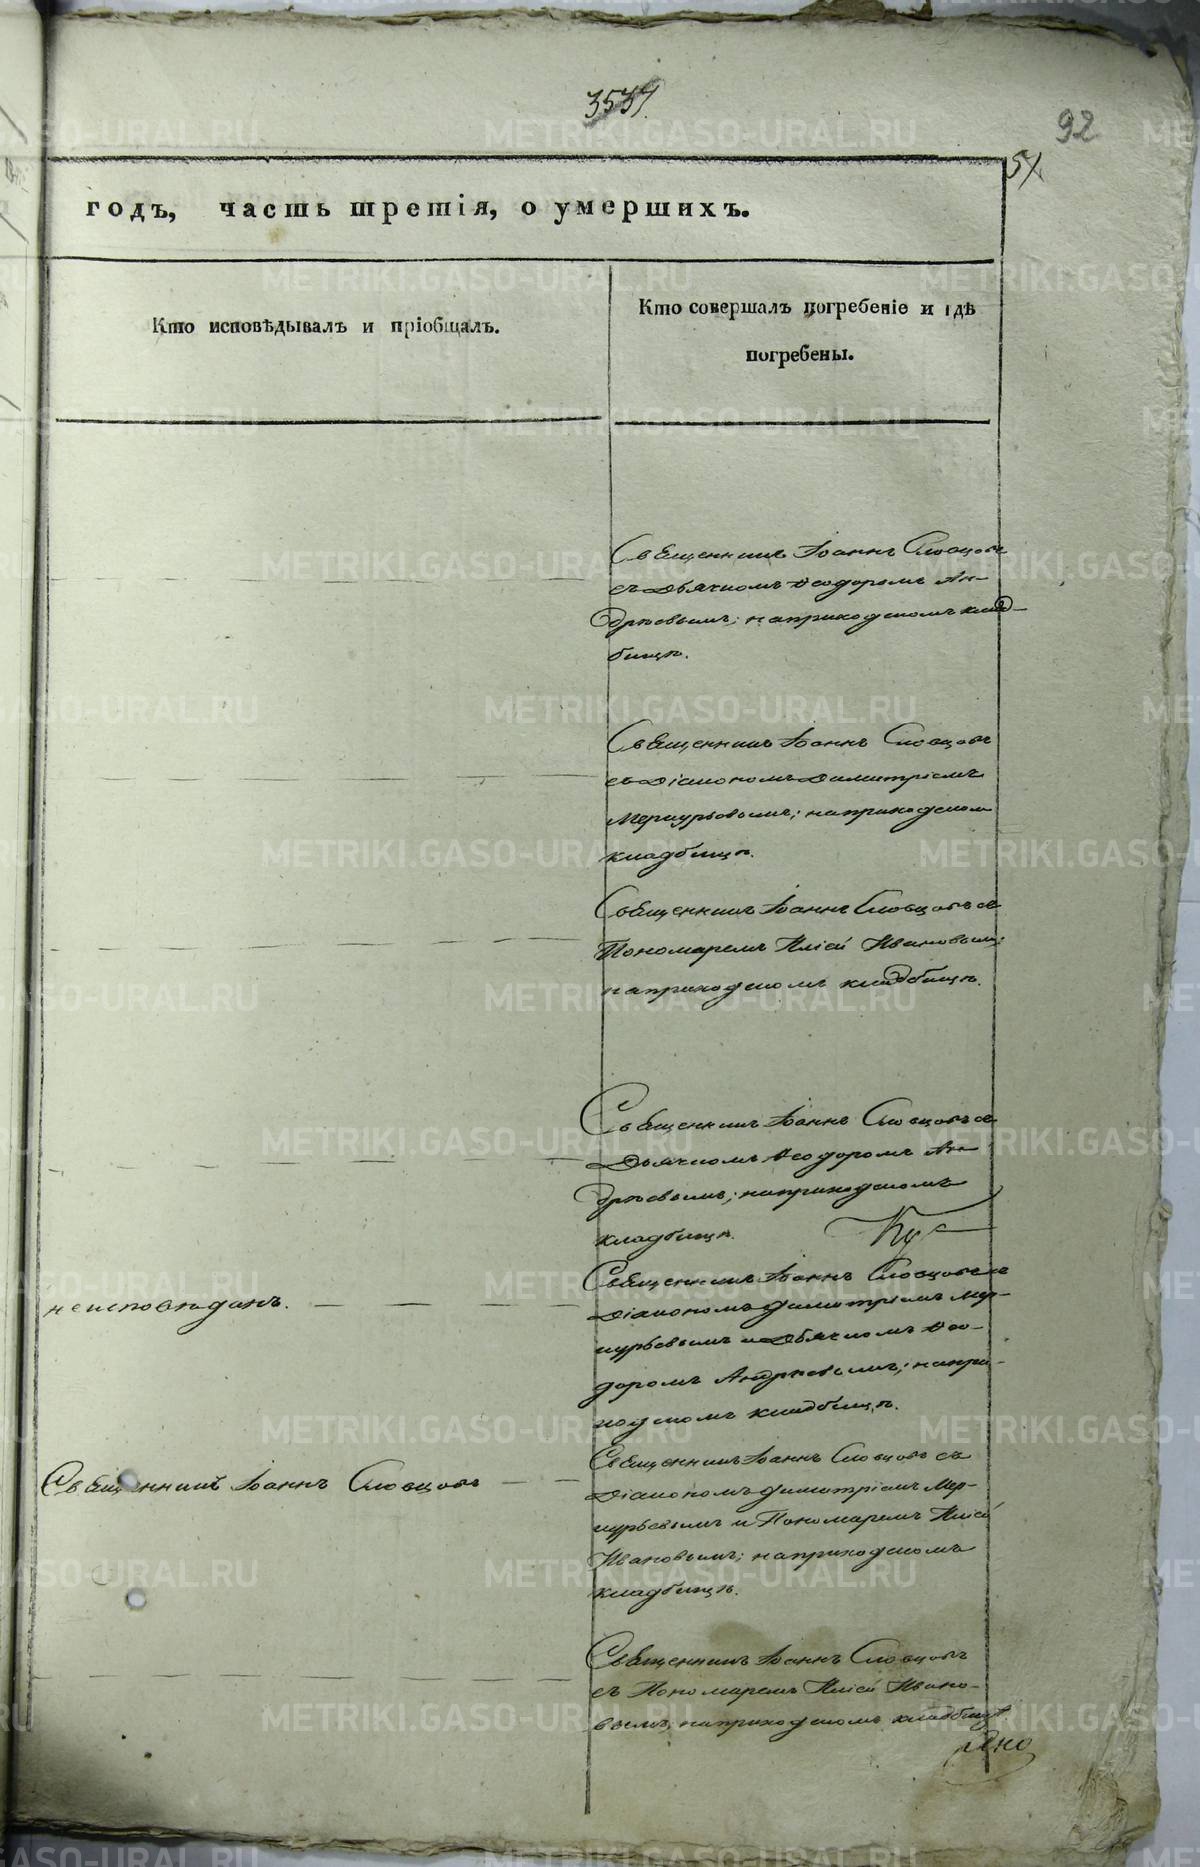 3537.
92
51.
годъ, часть третія, о умершихъ.
Кто исповѣдывалъ и пріобщалъ.
Кто совершалъ погребеніе и гдѣ
погребены.
Священникъ Іоаннъ Словцовъ
съ Дьячкомъ Ѳеодоромъ Ан-
дрѣевымъ; на приходскомъ клад-
бищѣ.
Священникъ Іоаннъ Словцовъ
съ Діакономъ Димитріемъ
Меркурьевымъ; на приходском
кладбищѣ.
Священникъ Іоаннъ Словцовъ съ
Пономаремъ Иліей Ивановым;
на приходскомъ кладбищѣ.
Священникъ Іоаннъ Словцовъ съ
Дьячкомъ Ѳеодоромъ Ан-
дрѣевымъ; на приходскомъ
кладбищѣ.
неисповѣданъ.
Священникъ Іоаннъ Словцовъ съ
Діакономъ Димитріемъ Мер-
курьевымъ и Дьячкомъ Ѳео-
доромъ Андрѣевымъ; на при-
ходскомъ кладбищѣ.
Священникъ Іоаннъ Словцовъ
Священникъ Іоаннъ Словцовъ съ
Діакономъ Димитріемъ Мер-
курьевымъ и Пономаремъ Иліей
Ивановымъ; на приходскомъ
кладбищѣ.
Священникъ Іоаннъ Словцовъ
съ Пономаремъ Иліей Ивано-
вымъ; на приходскомъ кладбищѣ
METRIKI.GASO-URAL.RU